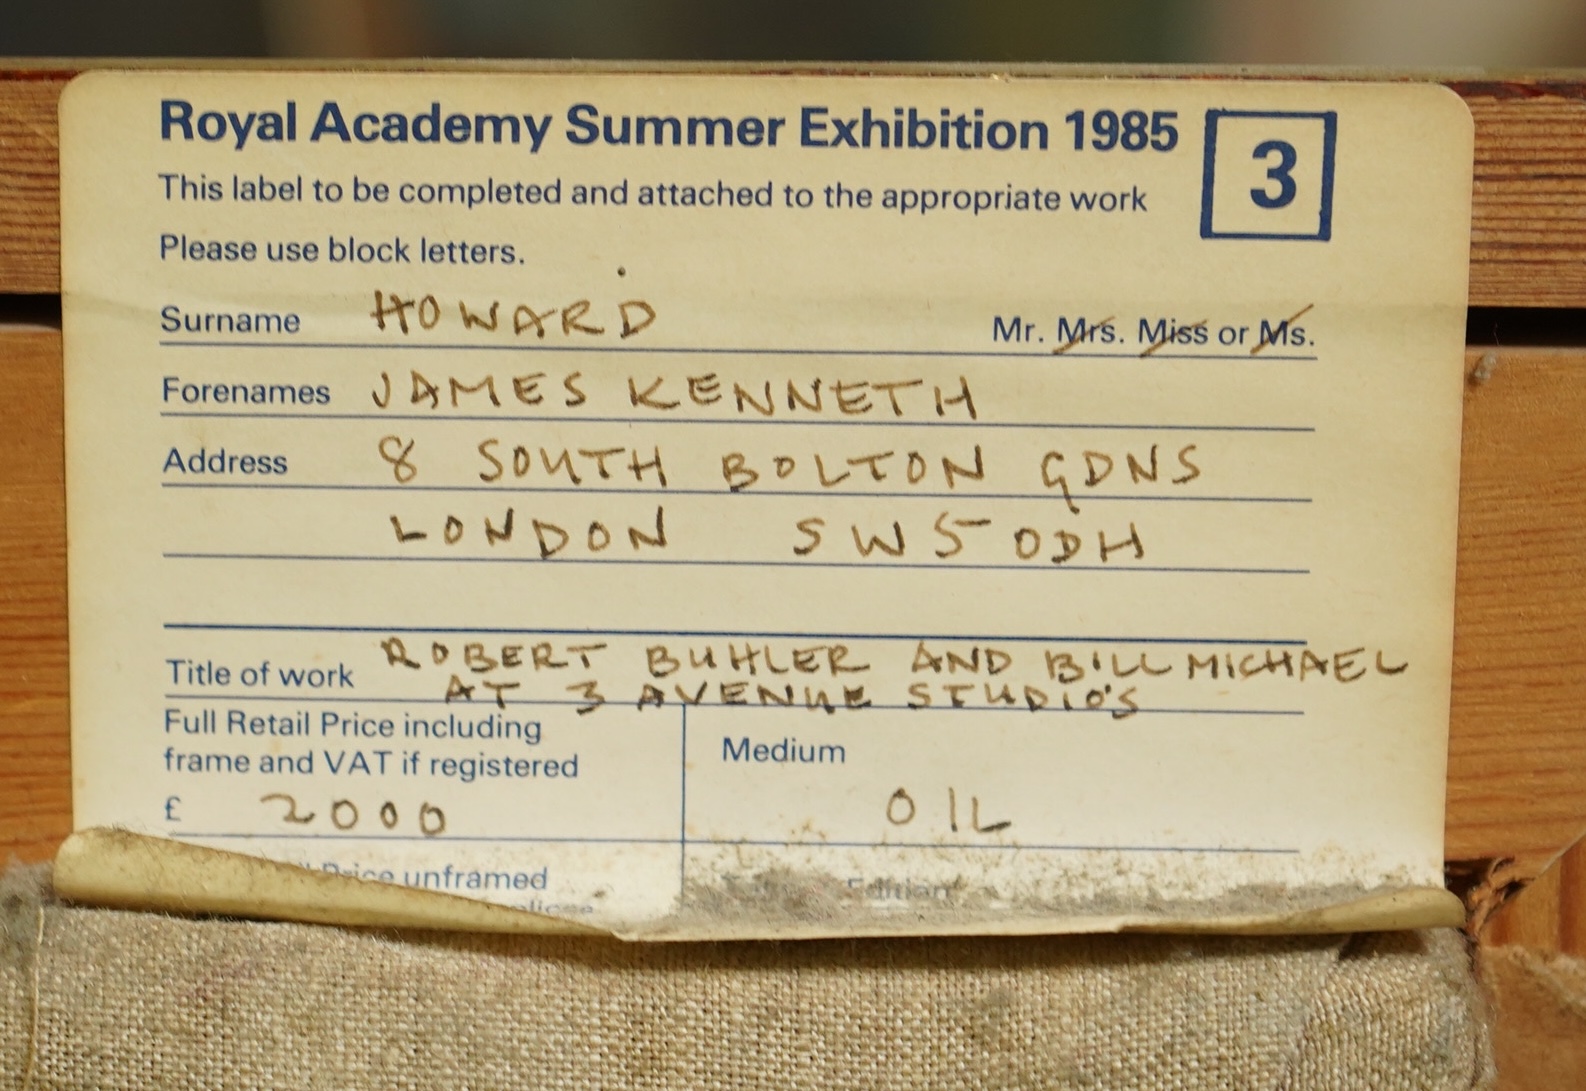 Royal Academy Summer Exhibition 1985 3
This label to be completed and attached to the appropriate work
Please use block letters.
Surname HOWARD Mr. Mrs. Miss or Ms.
Forenames JAMES KENNETH
Address 8 SOUTH BOLTON GDNS
LONDON SW5 0DH
Title of work ROBERT BUHLER AND BILL MICHAEL
AT 3 AVENUE STUDIO'S
Full Retail Price including
frame and VAT if registered
Medium
£ 2000
OIL
Price unframed
Edition